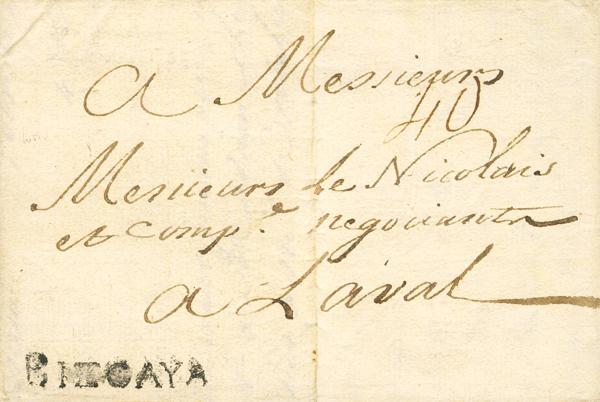 A Messieurs
40
Messieurs Le Nicolais
et Comp.e negotiants
a Laval
BIZCAYA